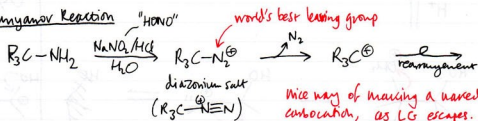 mjanov Reaction
"HONO"
world's best leaving group
R₃C–NH₂ NaNO₂/HCl H₂O R₃C–N₂⊕ N₂ R₃C⊕ rearrangement
diazonium salt
(R₃C–N⊕≡N)
nice way of making a naked
carbocation, as LG escapes.